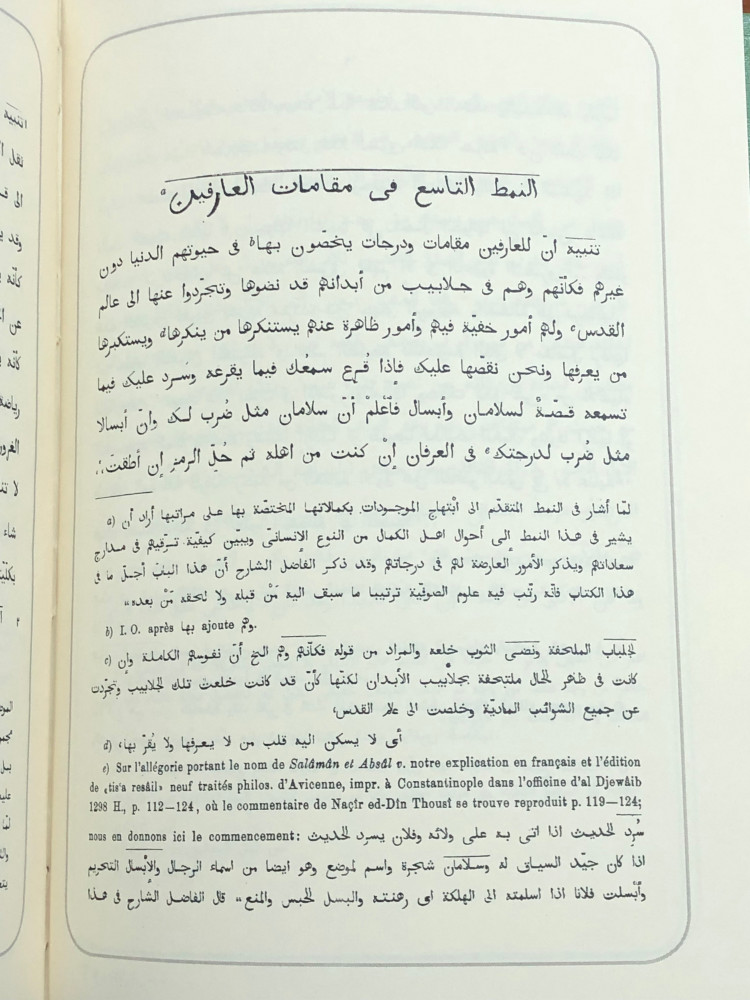 النمط التاسع فى مقامات العارفين
تنبيه انّ للعارفين مقامات ودرجات يخصّون بها فى حيوتهم الدنيا دون
غيرهم فكأنّهم وهم فى جلابيب من أبدانهم قد نضوها وتجرّدوا عنها الى عالم
القدس ولهم أمور خفيّة فيهم وأمور ظاهرة عنهم يستنكرها من ينكرها ويستكبرها
من يعرفها ونحن نقصّها عليك فإذا قُرع سمعُك فيما يقرعه وسَرد عليك فيما
تسمعه قصّةٌ لسلامان وأبسال فآعلمْ أنّ سلامان مثل ضُرب لك وانّ أبسالا
مثل ضُرب لدرجتك فى العرفان إنْ كنت من اهله ثم حُلّ الرمز إن أطقتَ
a) لمّا أشار فى النمط المتقدّم الى ابْتهاج الموجودات بكمالاتها المختصّة بها على مراتبها أراد أن
يشير فى هذا النمط إلى أحوال اهل الكمال من النوع الإنسانىّ ويبيّن كيفيّة ترقّيهم فى مدارج
سعاداتهم ويذكر الأمور العارضة لهم فى درجاتهم وقد ذكر الفاضل الشارح أنّ هذا الباب أجلّ ما فى
هذا الكتاب فانّه رتّب فيه علوم الصوفيّة ترتيبا ما سبق اليه مَنْ قبله ولا لحقه مَنْ بعده
b) I. O. après بها ajoute وهم.
c) الجلباب الملحفة ونضى الثوب خلعه والمراد من قوله فكأنّهم وهم الخ أنّ نفوسهم الكاملة وإن
كانت فى ظاهر الحال ملتحفة بجلابيب الأبدان لكنّها كأنّ قد كانت خلعت تلك الجلابيب وتجرّدت
عن جميع الشوائب الماديّة وخلصت الى عالم القدس
d) أى لا يسكن اليه قلب من لا يعرفها ولا يُقرّ بها
e) Sur l'allégorie portant le nom de Salâmân et Absâl v. notre explication en français et l'édition
de «tis'a resâil» neuf traités philos. d'Avicenne, impr. à Constantinople dans l'officine d'al Djewâib
1298 H., p. 112—124, où le commentaire de Naçîr ed-Dîn Thousî se trouve reproduit p. 119—124;
nous en donnons ici le commencement: سُرِد الحديث اذا اتى به على ولائه وفلان يسرد الحديث
اذا كان جيّد السياق له وسلامان شجرة واسم لموضع وهو ايضا من اسماء الرجال والإبسال التحريم
وأبْسلت فلانا اذا اسلمته الى الهلكة اى رهنته والبسل الحبس والمنع قال الفاضل الشارح فى هذا